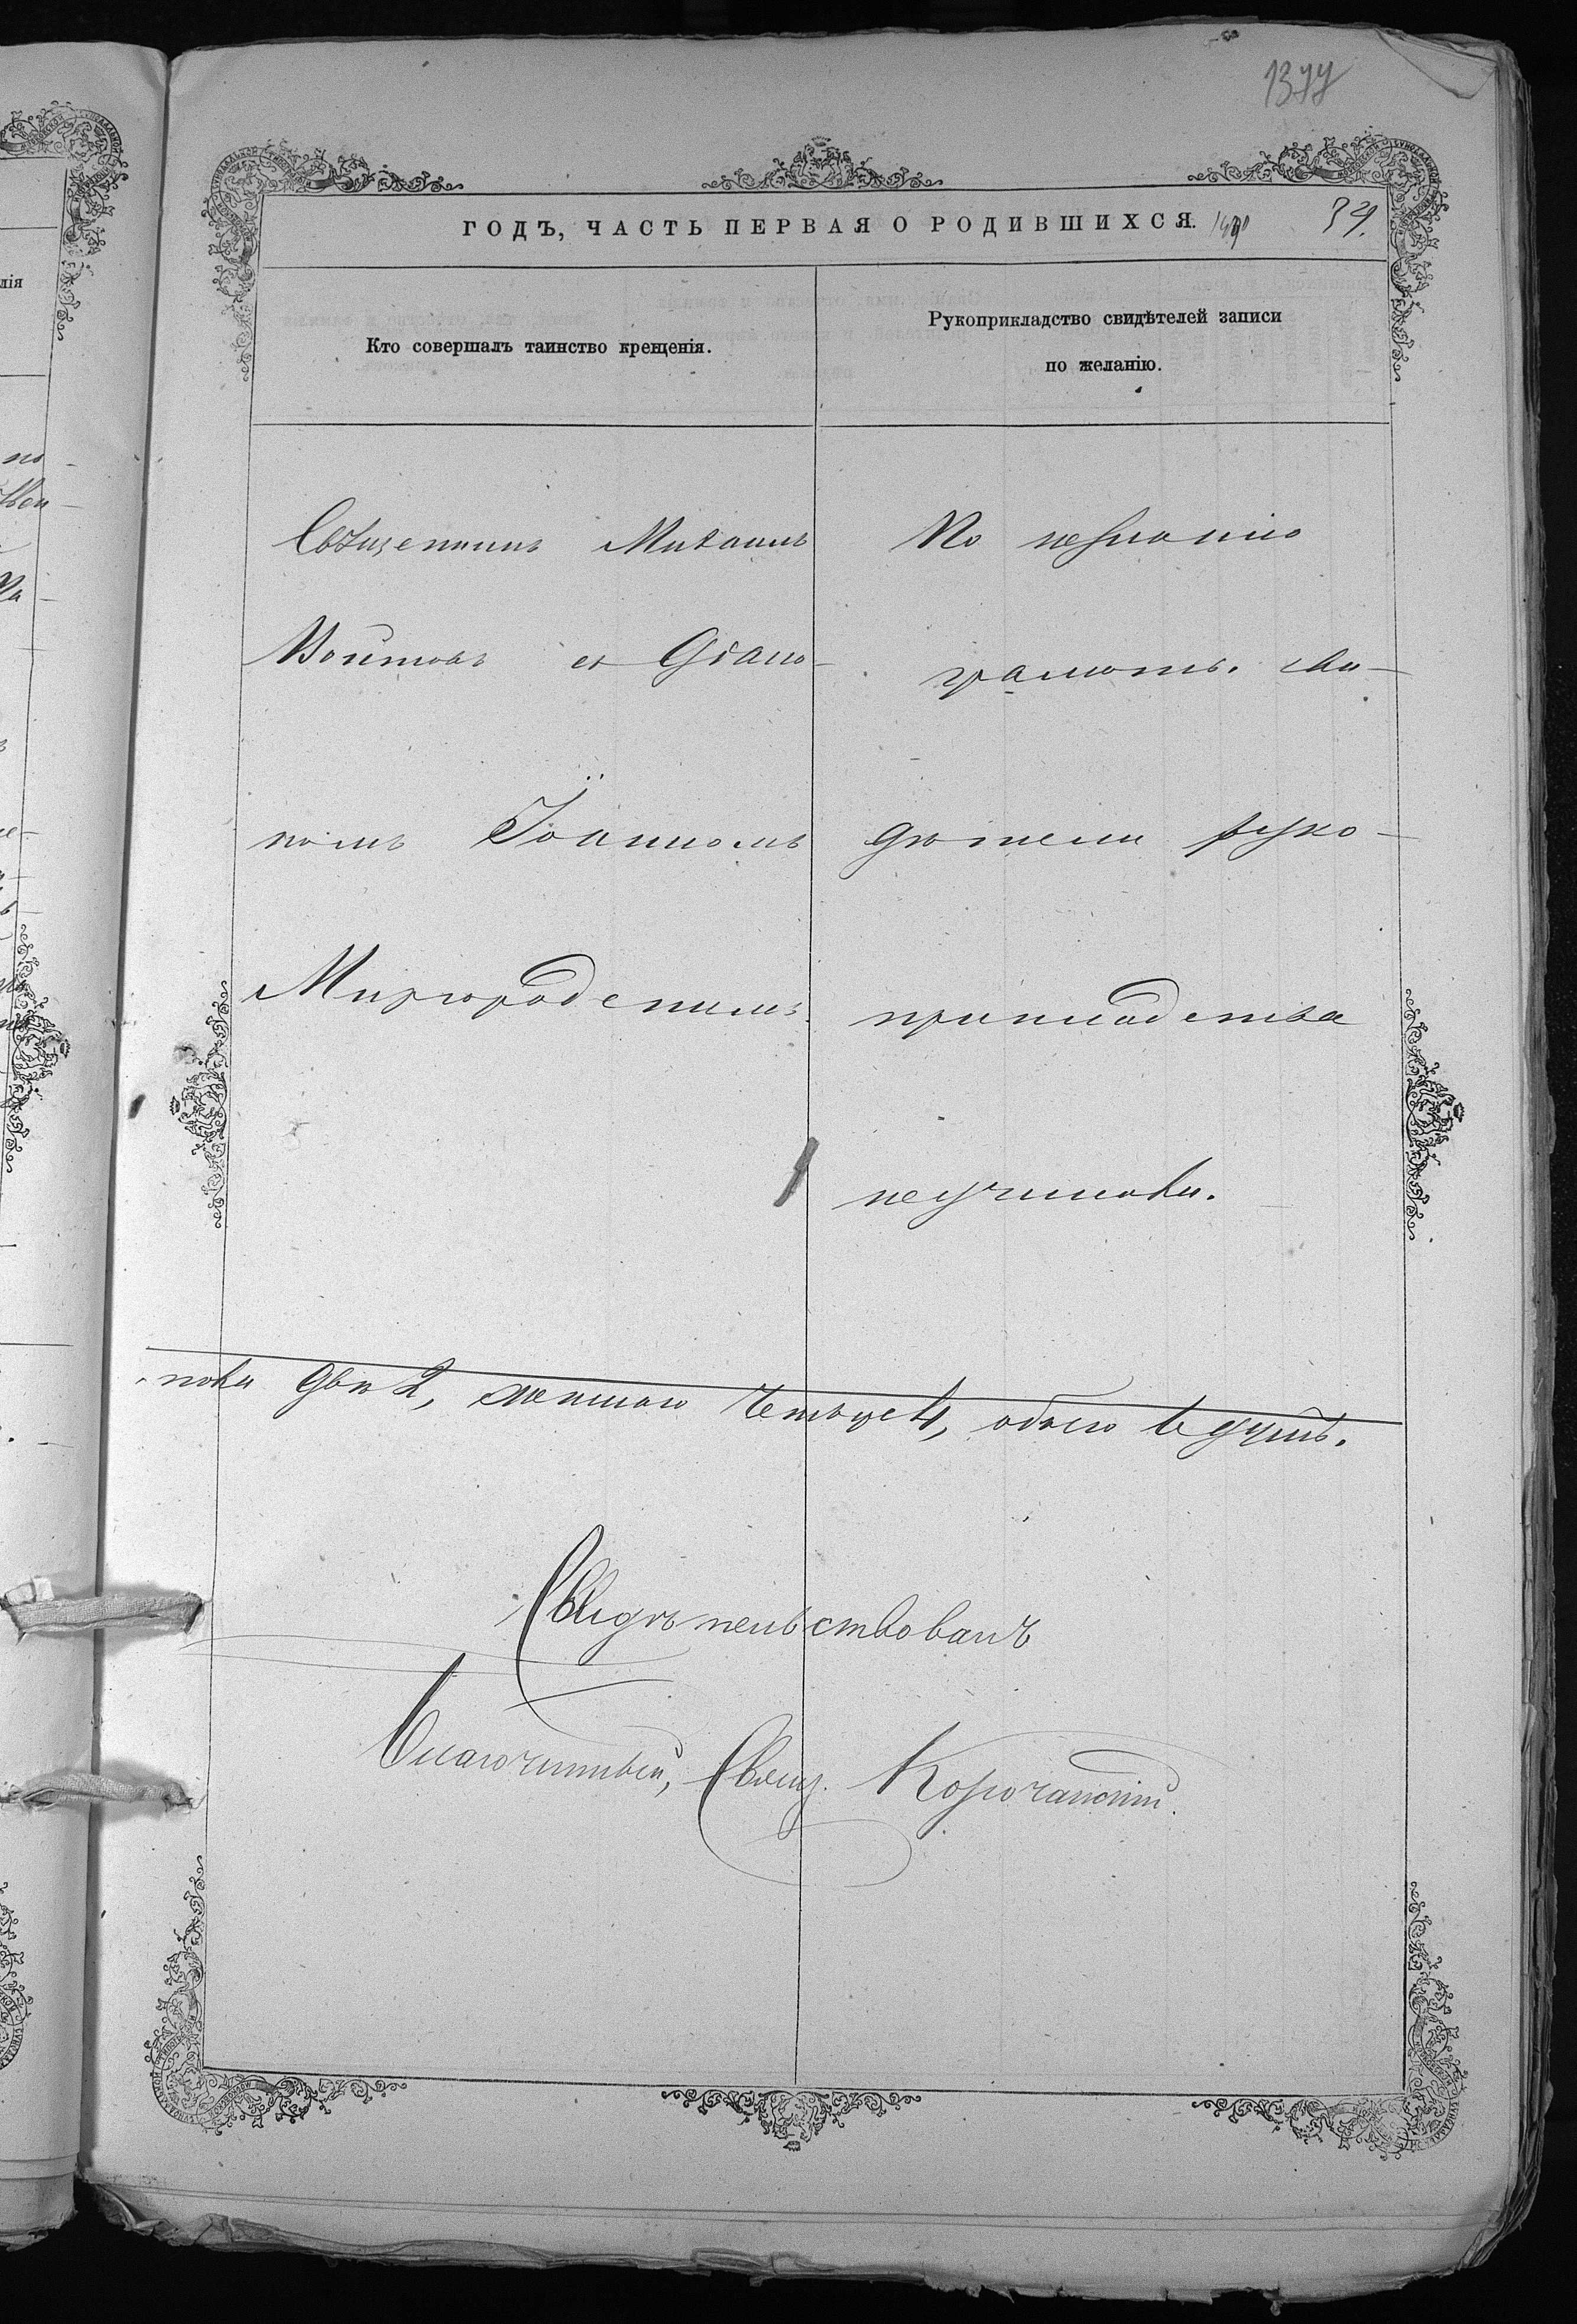 1377
ГОДЪ, ЧАСТЬ ПЕРВАЯ О РОДИВШИХСЯ.
39.
Кто совершалъ таинство крещенія.
Рукоприкладство свидѣтелей записи
по желанію.
Священникъ Михаилъ
Войтовъ съ Діако-
номъ Іоанномъ
Миргородскимъ
По незнанію
грамоты. сви-
дѣтели руко-
прикладства
неучинили.
пола двѣ 2, женскаго четыре 4, обоего 6 душъ.
Свидѣтельствовалъ
Благочинный, Свящ. Корочанскій.